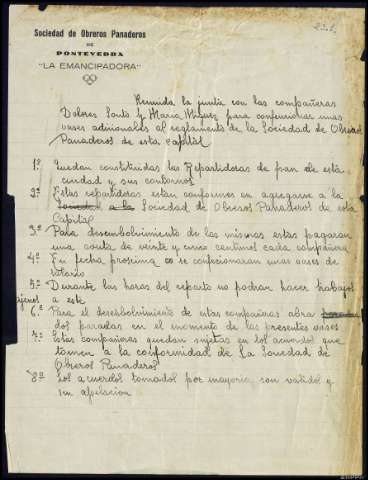 Sociedad de Obreros Panaderos
DE
PONTEVEDRA
"LA EMANCIPADORA"
Reunida la junta con las compañeras
Dolores Souto y Maria Miguez para confecionar unas
vases adicionales al reglamento de la Sociedad de Obreros
Panaderos de esta capital
1.º Quedan constituidas las Repartidoras de pan de esta
ciudad y sus contornos
2.º Estas repartidoras estan conformes en agregarse a la
Sociedad de Obreros Panaderos de esta
Capital
3.º Para desembolbimiento de las mismas estas pagaran
una couta de veinte y cinco centimos cada compañera
4.º En fecha proxima se confecionaran unas vases de
5.º Durante las horas del reparto no podran hacer trabajos
ajenos a este
6.º Para el desembolvimiento de estas compañeras abra
dos paradas en el momento de las presentes vases
7.º Estas compañeras quedan sujetas en los acuerdos que
tomen a la conformidad de La Sociedad de
Obreros Panaderos
8º Los acuerdos tomados por mayoria son validos y
sin apelacion